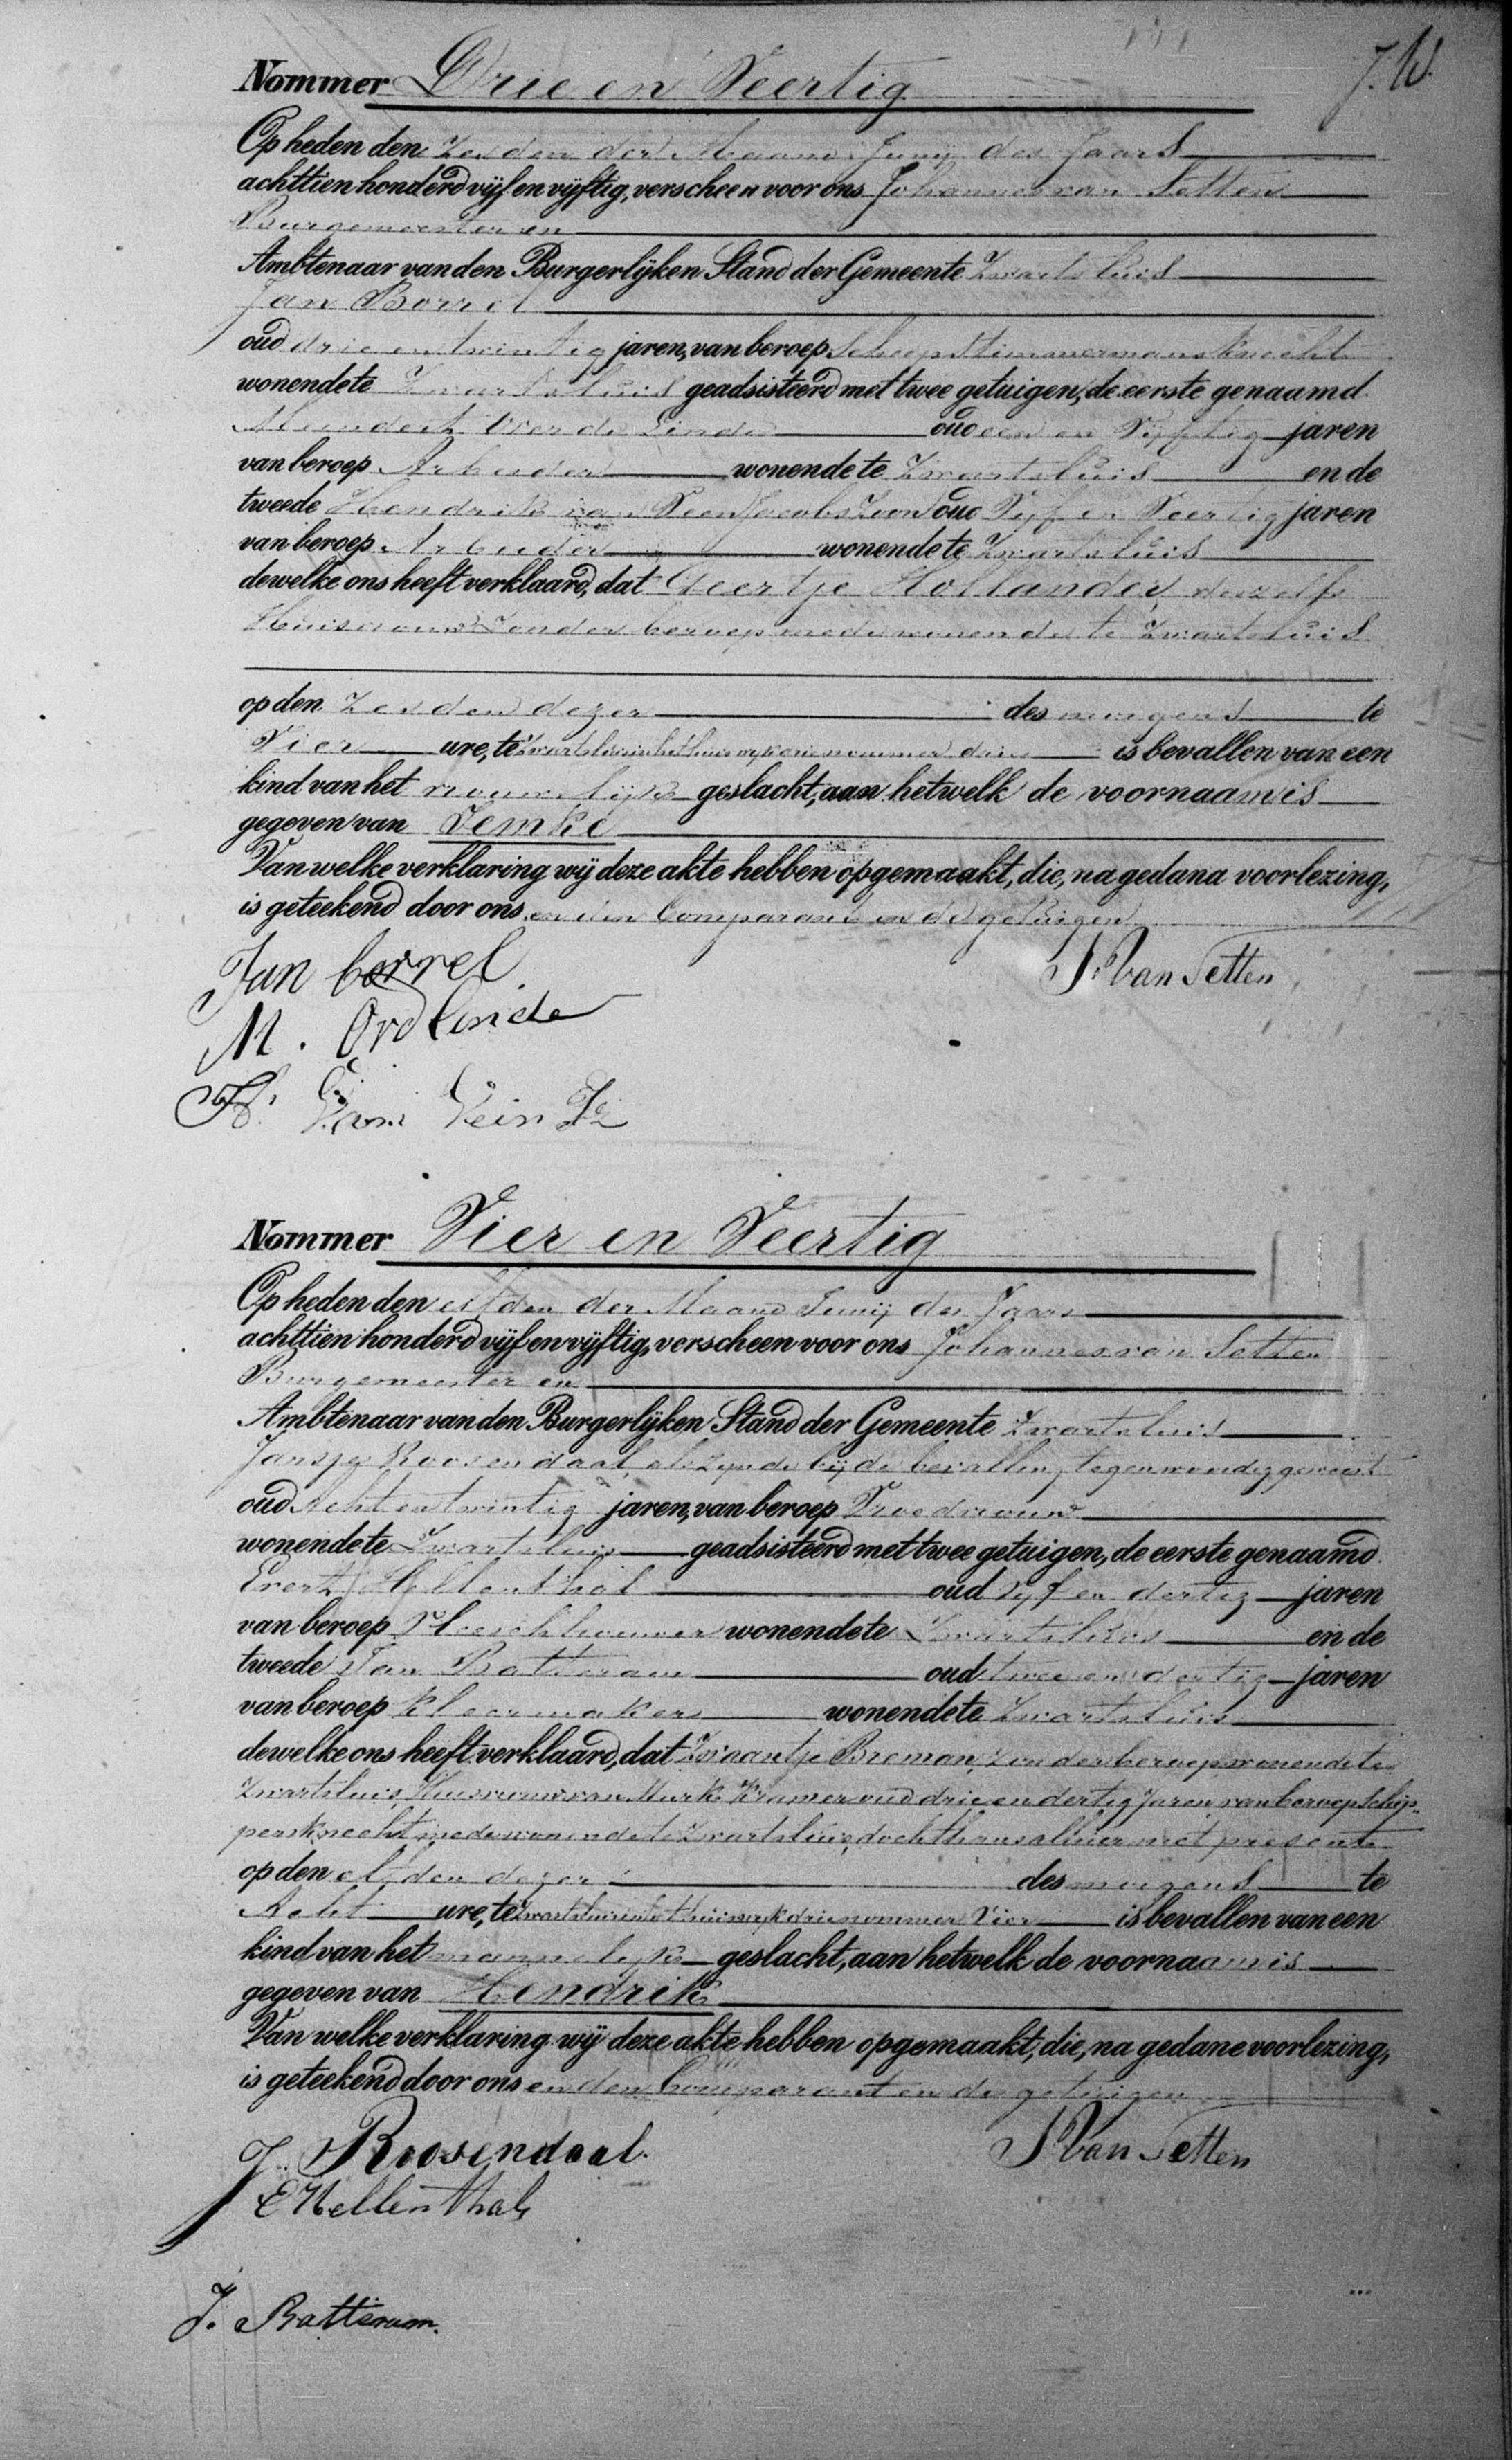 J.W.
Nommer Drie en Veertig
Op heden den Zesden der Maand Junij des Jaars
achttien honderd vijf en vijftig, verscheen voor ons Johannes van Setten
Burgemeester en
Ambtenaar van den Burgerlijken Stand der Gemeente Zwartsluis
Jan Borrel
oud drie en twintig jaren, van beroep Scheepstimmermansknecht
wonende te Zwartsluis geadsisteerd met twee getuigen, de eerste genaamd
Meindert Over de Linde oud een en Vijftig jaren
van beroep Arbeider wonende te Zwartsluis en de
tweede Hendrik van Veen Jacobs Zoon oud Vijf en Veertig jaren
van beroep Arbeider wonende te Zwartsluis
dewelke ons heeft verklaard, dat Geertje Hollander, deszelfs
Huisvrouw Zonder beroep mede wonende te Zwartsluis
op den Zesden dezer des morgens te
Vier ure, te Zwartsluis in het huis wijk drie nommer is bevallen van een
kind van het vrouwelijk geslacht, aan hetwelk de voornaam is
gegeven van Jemke
Van welke verklaring wij deze akte hebben opgemaakt, die, na gedana voorlezing,
is geteekend door ons en den Comparant en de getuigen
Jan borrel J. Van Setten
M. Ovd Linde
H. Van Vein Jz
Nommer Vier en Veertig
Op heden den elfden der Maand Junij des Jaars
achttien honderd vijf en vijftig, verscheen voor ons Johannes van Setten
Burgemeester en
Ambtenaar van den Burgerlijken Stand der Gemeente Zwartsluis
Jansje Roosendaal, als zijnde bij de bevalling tegenwoordig geweest
oud Acht en twintig jaren, van beroep Vroedvrouw
wonende te Zwartsluis geadsisteerd met twee getuigen, de eerste genaamd
Evert Hellenthal oud Vijf en dertig jaren
van beroep Vleeschhouwer wonende te Zwartsluis en de
tweede Jan Batteram oud twee en dertig jaren
van beroep kleermaker wonende te Zwartsluis
dewelke ons heeft verklaard, dat Zwaantje Breman, Zonder beroep wonende te
Zwartsluis, Huisvrouw van Murk Kramer oud drie en dertig Jaren van beroep Schip-
persknecht mede wonende te Zwartsluis, doch thans alhier niet present
op den elfden dezer des morgens te
Acht ure, te Zwartsluis in het huis wijk drie nommer Vier is bevallen van een
kind van het mannelijk geslacht, aan hetwelk de voornaam is
gegeven van Hendrik
Van welke verklaring wij deze akte hebben opgemaakt, die, na gedane voorlezing,
is geteekend door ons en den Comparant en de getuigen
J. Roosendaal. J. Van Setten
E Hellenthal
J. Batteram.